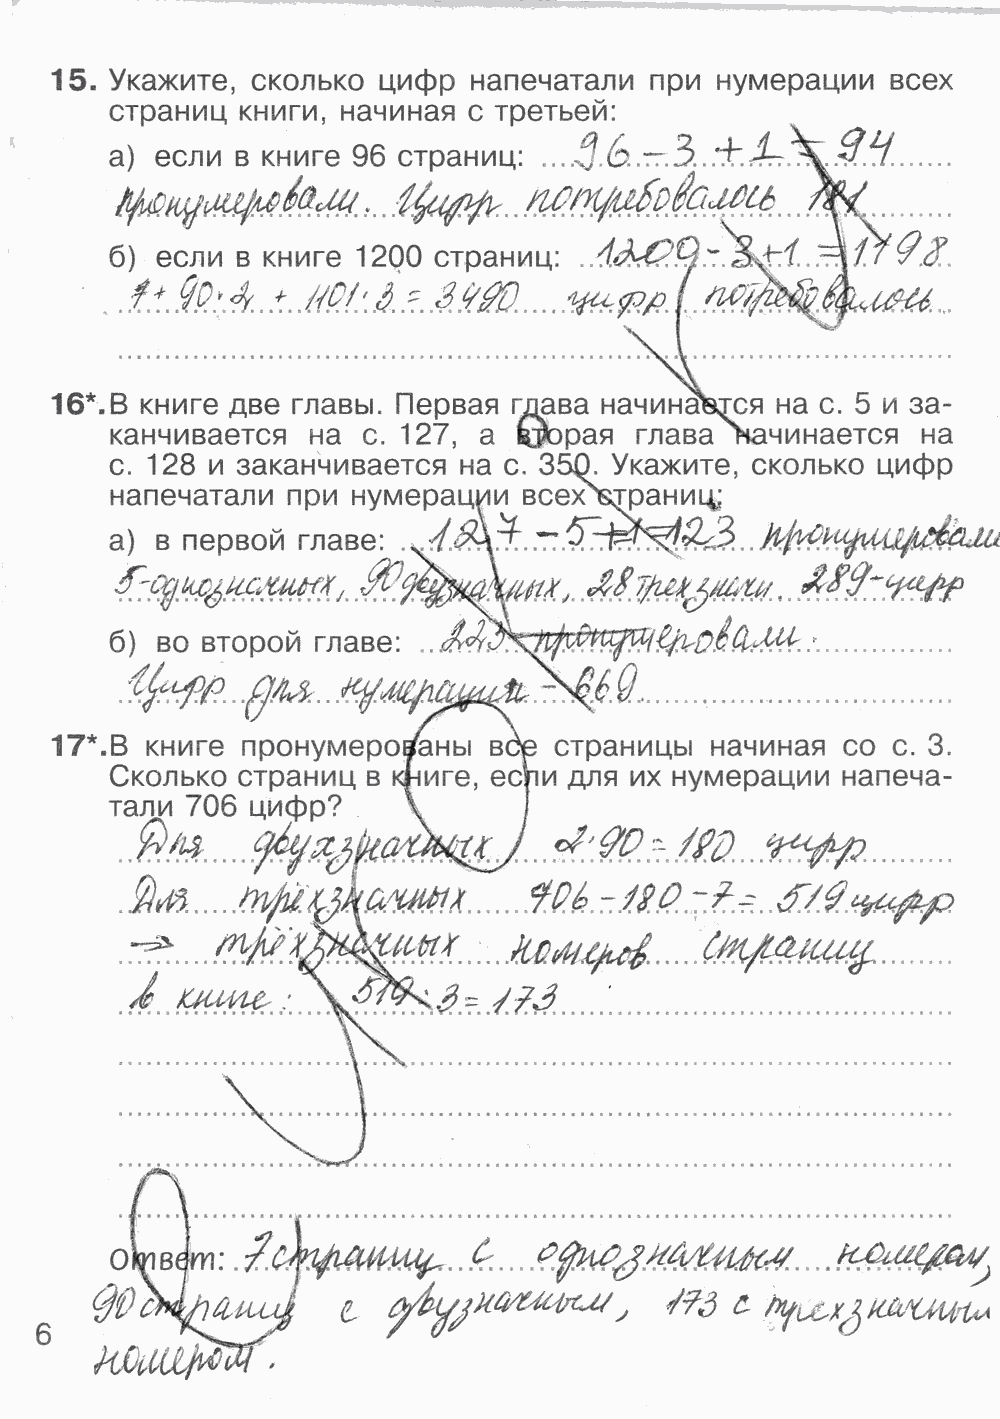 15. Укажите, сколько цифр напечатали при нумерации всех
страниц книги, начиная с третьей:
а) если в книге 96 страниц: 96 – 3 + 1 = 94
пронумеровали. Цифр потребовалось 181
б) если в книге 1200 страниц: 1200 - 3 + 1 = 1198
7 + 90 · 2 + 1101 · 3 = 3490 цифр потребовалось
16*. В книге две главы. Первая глава начинается на с. 5 и за-
канчивается на с. 127, а вторая глава начинается на
с. 128 и заканчивается на с. 350. Укажите, сколько цифр
напечатали при нумерации всех страниц:
а) в первой главе: 127 – 5 + 1 = 123 пронумеровали
5-однозначных, 90 двузначных, 28 трехзначн. 289-цифр
б) во второй главе: 223 пронумеровали.
Цифр для нумерации – 669.
17*. В книге пронумерованы все страницы начиная со с. 3.
Сколько страниц в книге, если для их нумерации напеча-
тали 706 цифр?
Для двухзначных 2·90 = 180 цифр
Для трёхзначных 706 – 180 – 7 = 519 цифр
→ трёхзначных номеров страниц
в книге: 519 : 3 = 173
Ответ: 7 страниц с однозначным номером,
90 страниц с двузначным, 173 с трехзначным
6
номером.